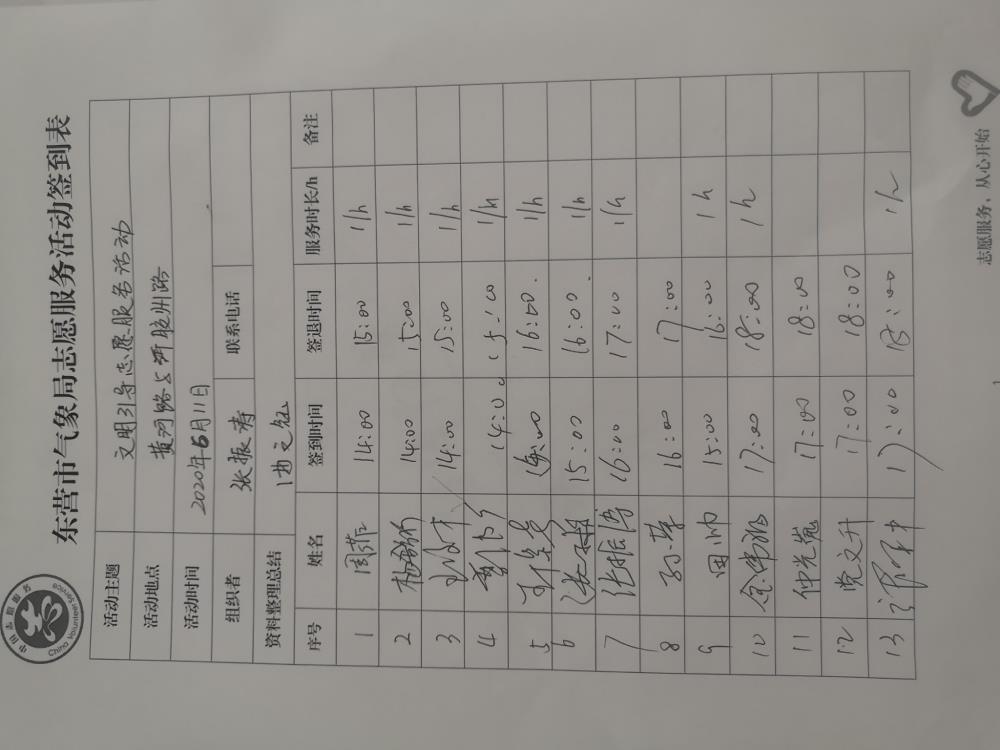 中国志愿服务
China Volunteer Service
东营市气象局志愿服务活动签到表
活动主题 文明引导志愿服务活动
活动地点 黄河路与胶州路
活动时间 2020年6月11日
组织者 张振涛 联系电话
资料整理总结 曲文钰
序号 姓名 签到时间 签退时间 服务时长/h 备注
1 14:00 15:00 1/h
2 14:00 15:00 1/h
3 14:00 15:00 1/h
4 14:00 15:00 1/h
5 16:00. 1/h
6 15:00 16:00. 1/h
7 张振涛 16:00 17:00 1/h
8 16:00 17:00
9 田帅 15:00 16:00 1h
10 17:00 18:00 1h
11 17:00 18:00
12 党文升 17:00 18:00
13 17:00 18:00 1h
志愿服务、从心开始